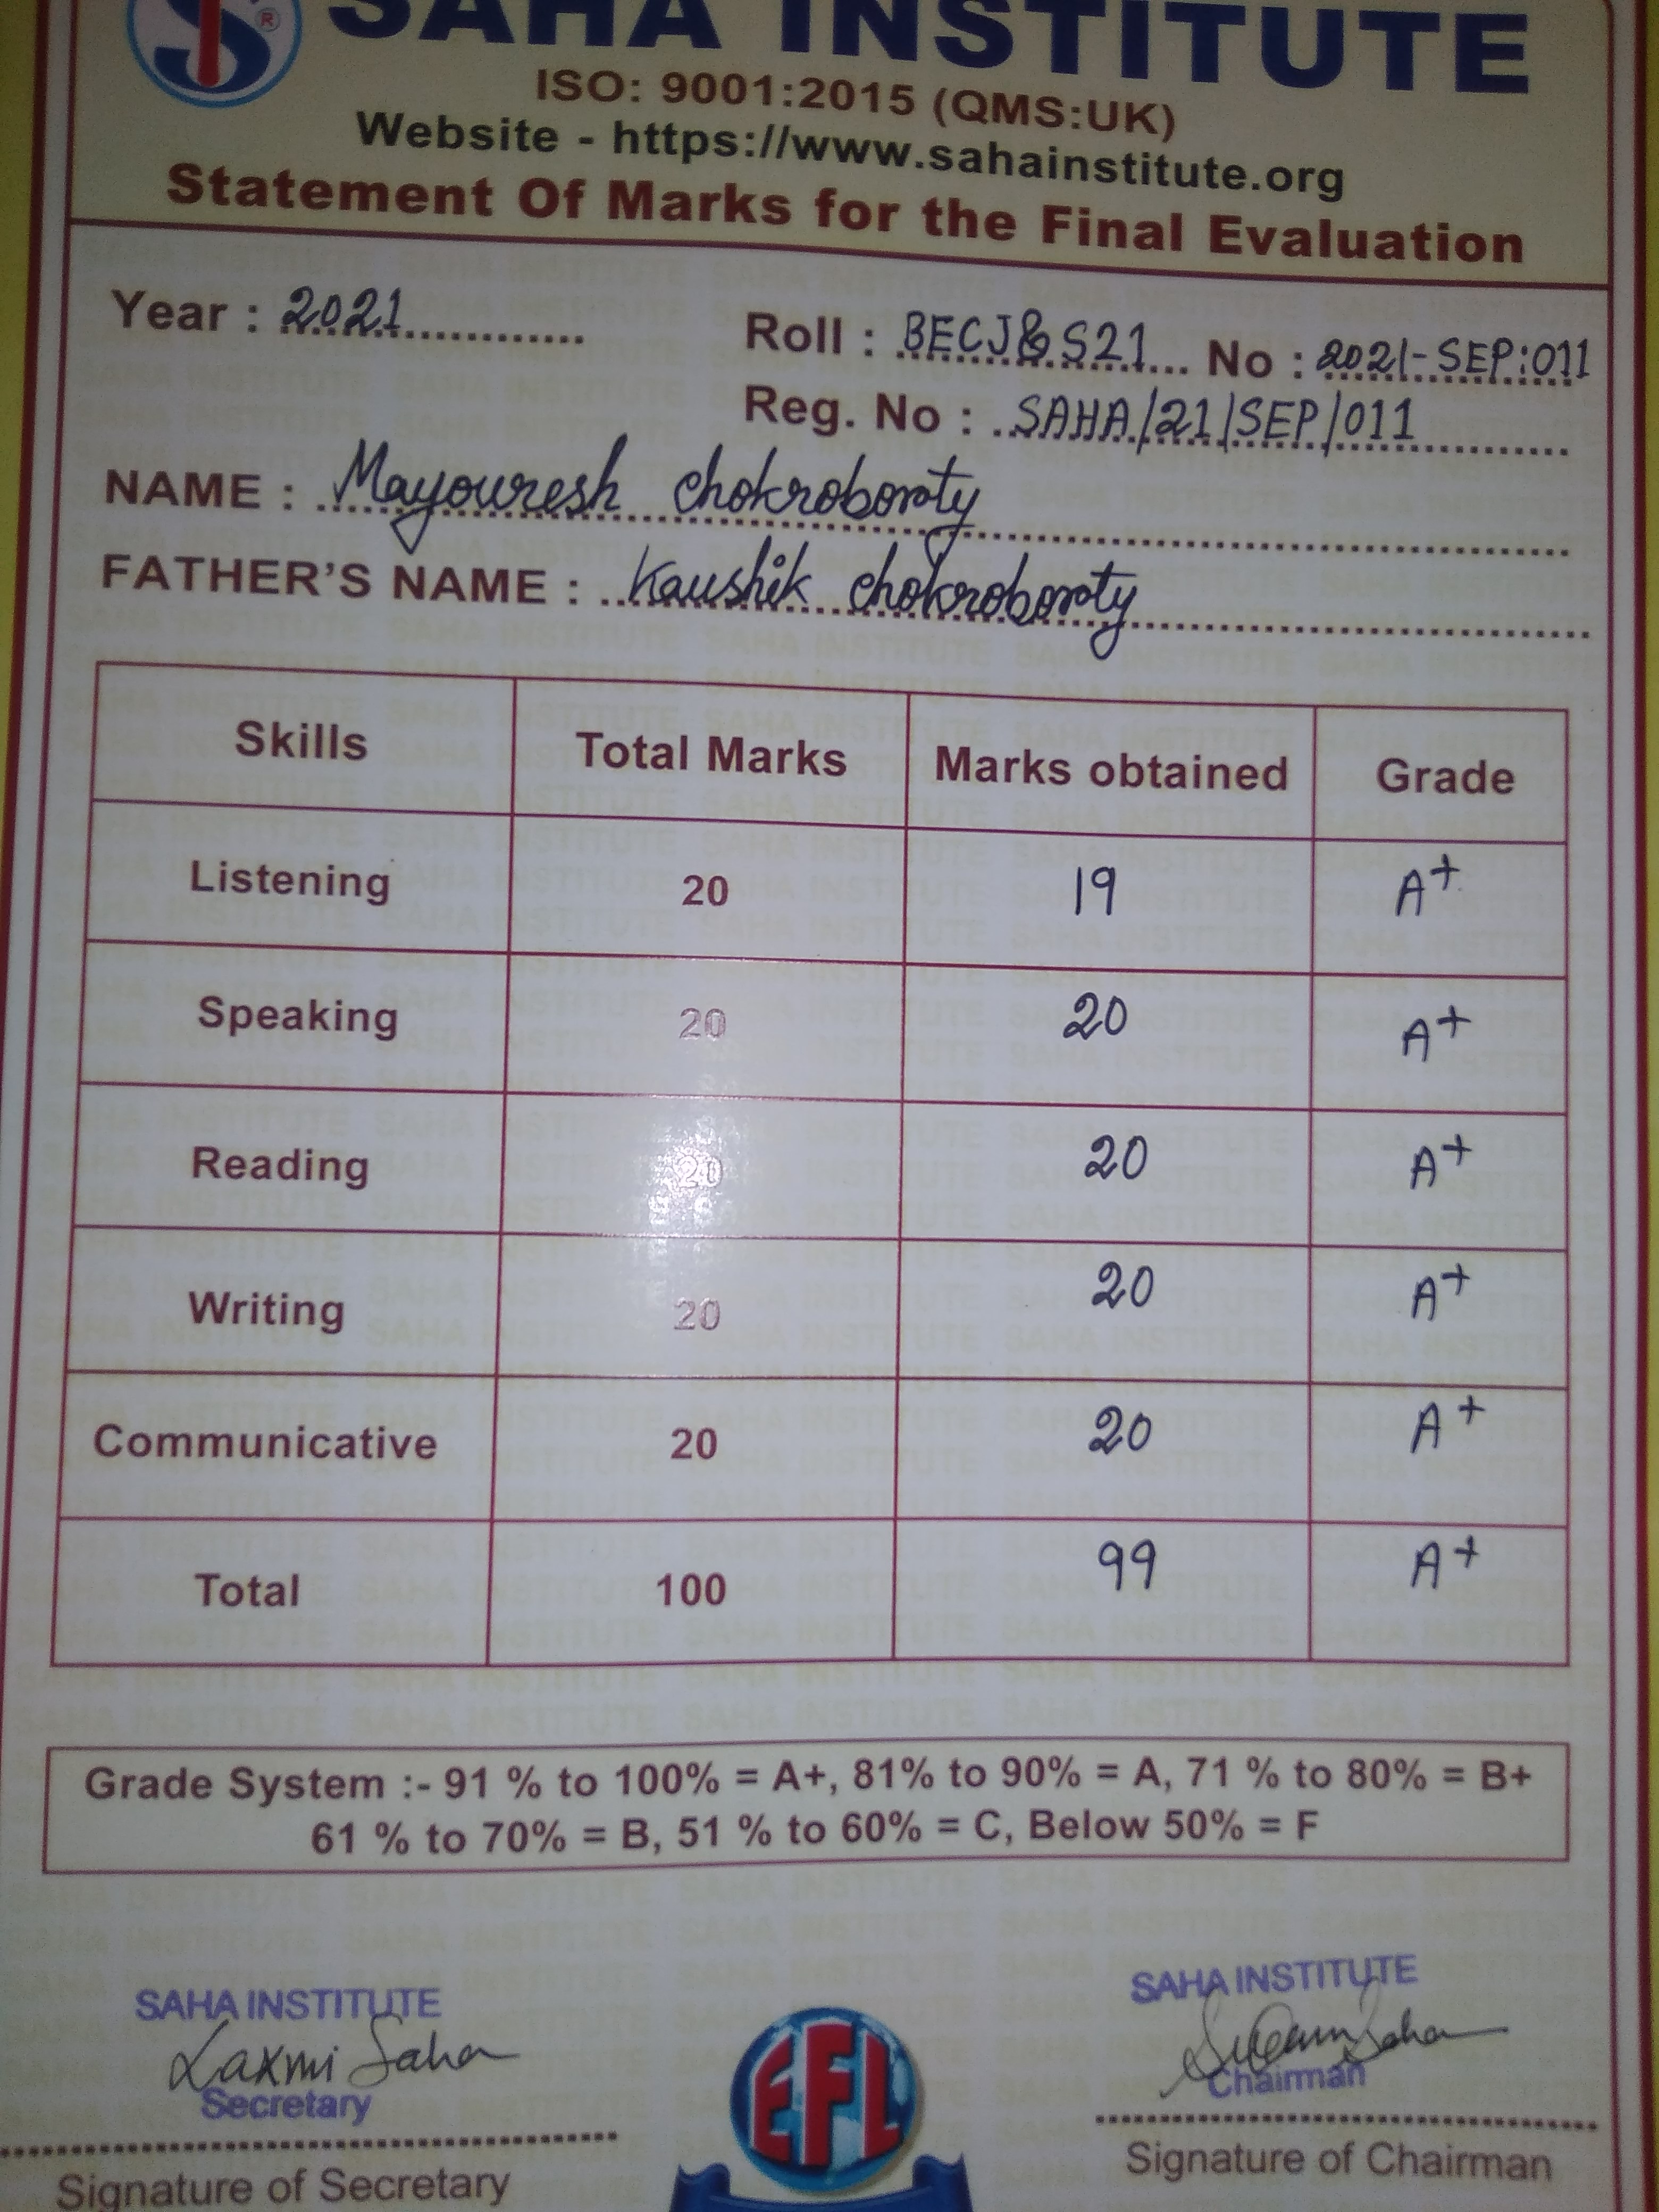 SAHA INSTITUTE
ISO: 9001:2015 (QMS:UK)
Website - https://www.sahainstitute.org
Statement Of Marks for the Final Evaluation
Year : 2021 Roll : BECJ&S21 No : 2021-SEP:011
Reg. No : SAHA/21/SEP/011
NAME : Mayouresh chokroboroty
FATHER'S NAME : Kaushik chokroboroty
Skills Total Marks Marks obtained Grade
Listening 20 19 A+
Speaking 20 20 A+
Reading 20 20 A+
Writing 20 20 A+
Communicative 20 20 A+
Total 100 99 A+
Grade System :- 91 % to 100% = A+, 81% to 90% = A, 71 % to 80% = B+
61 % to 70% = B, 51 % to 60% = C, Below 50% = F
SAHA INSTITUTE
Laxmi Saha
Secretary
Signature of Secretary
EFL
SAHA INSTITUTE
Saha
Chairman
Signature of Chairman